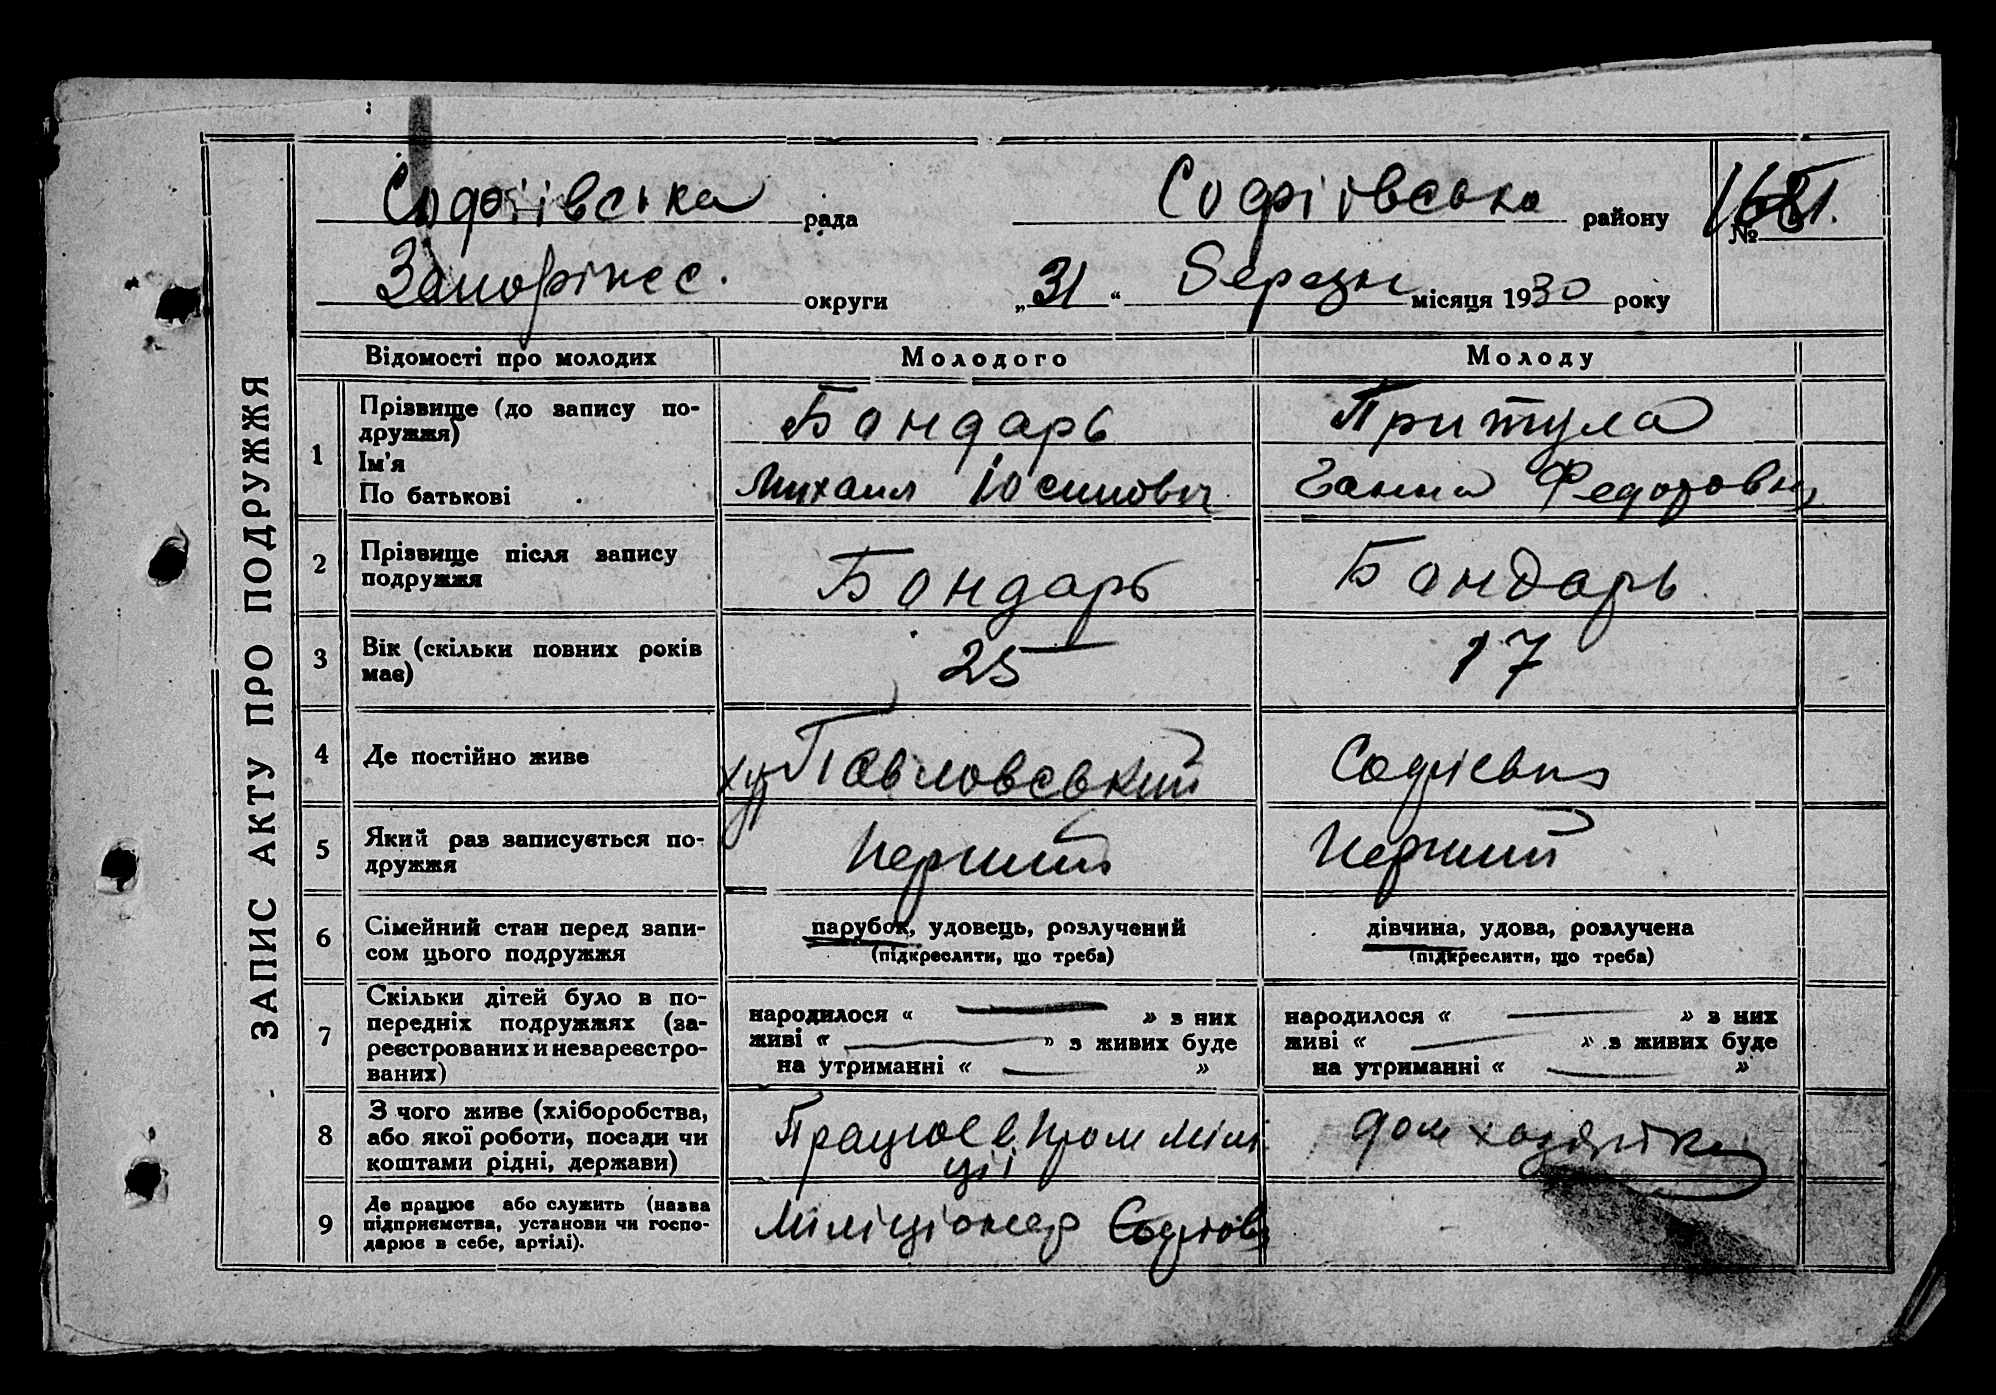 ЗАПИС АКТУ ПРО ПОДРУЖЖЯ
Софіівська рада Софіівсько району №
Запоріжсс. округи „31“ Березн місяця 1930 року
Відомості про молодих Молодого Молоду
1 Прізвище (до запису по-
дружжя) Бондарь Притула
Ім'я
По батькові Михаил Іосипович Ганна Федоровна
2 Прізвище після запису
подружжя Бондарь Бондарь
3 Вік (скільки повних років
має) 25 17
4 Де постійно живе хут Павловський Софіевка
5 Який раз записується по-
дружжя Перший Перший
6 Сімейний стан перед запи-
сом цього подружжя
парубок, удовець, розлучений дівчина, удова, розлучена
(підкреслити, що треба) (підкреслити, що треба)
7 Скільки дітей було в по-
передніх подружжях (за-
реєстрованих и незареєстро-
ваних)
народилося « » з них народилося « » з них
живі « » з живих буде живі « » з живих буде
на утриманні « » на утриманні « »
8 З чого живе (хліборобства,
або якої роботи, посади чи
коштами рідні, держави)
Працює в пром мілі
ціі
дом хозяйка
9 Де працює або служить (назва
підприємства, установи чи госпо-
дарює в себе, артілі).
Міліціонер